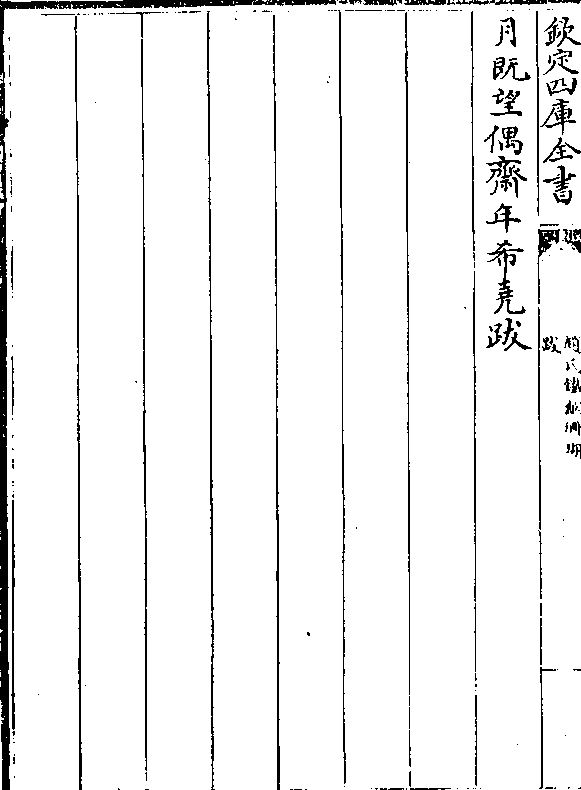 欽定四庫全書
趙氏鐵網珊瑚
跋
月既望偶齋年希堯跋